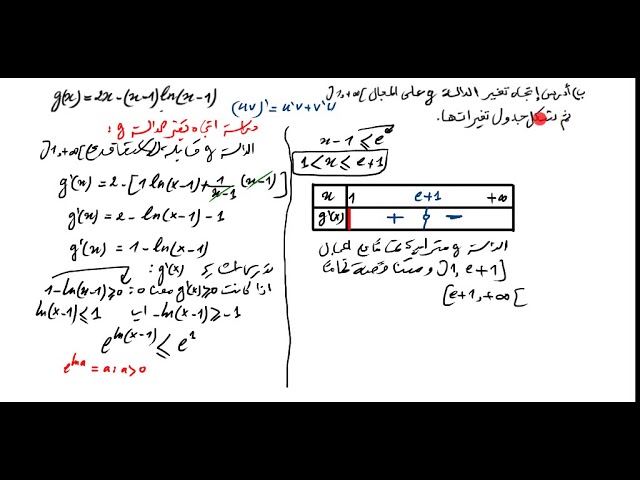 ب) أدرس إتجاه تغير الدالة g على المجال ]1,+∞[
ثم شكل جدول تغيراتها.
g(x) = 2x-(x-1)ln(x-1)
(uv)' = u'v+v'u
دراسة اتجاه تغير الدالة g:
الدالة g قابلة للاشتقاق على ]1,+∞[
g'(x) = 2-[1 ln(x-1)+1/(x-1) (x-1)]
g'(x) = 2-ln(x-1)-1
g'(x) = 1-ln(x-1)
ندرس اشارة g'(x):
اذا كانت g'(x)≥0 معناه: 1-ln(x-1)≥0
-ln(x-1)≥-1 اي ln(x-1)≤1
e^ln(x-1) ≤ e^1
e^lna = a ; a>0
x-1 ≤ e
1<x≤e+1
x 1 e+1 +∞
g'(x) + 0 -
الدالة g متزايدة تماما على المجال
]1, e+1] ومتناقصة تماما
[e+1,+∞[